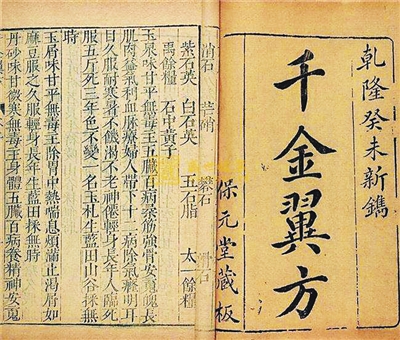 乾隆癸未新鐫
千金翼方
保元堂藏板
消石 芒硝 礬石 滑石
紫石英 白石英 五石脂 太一餘糧
禹餘糧 石中黃子
玉泉味甘平無毒主五臟百病柔筋強骨安魂魄長
肌肉益氣利血脉療婦人帶下十二病除氣癃明耳
目久服耐寒暑不饑渴不老神僊輕身長年人臨死
服五斤死三年色不變一名玉札生藍田山谷採無時
玉屑味甘平無毒主除胃中熱喘息煩滿止渴屑如
麻豆服之久服輕身長年生藍田採無時
丹砂味甘微寒無毒主身體五臟百病養精神安魂